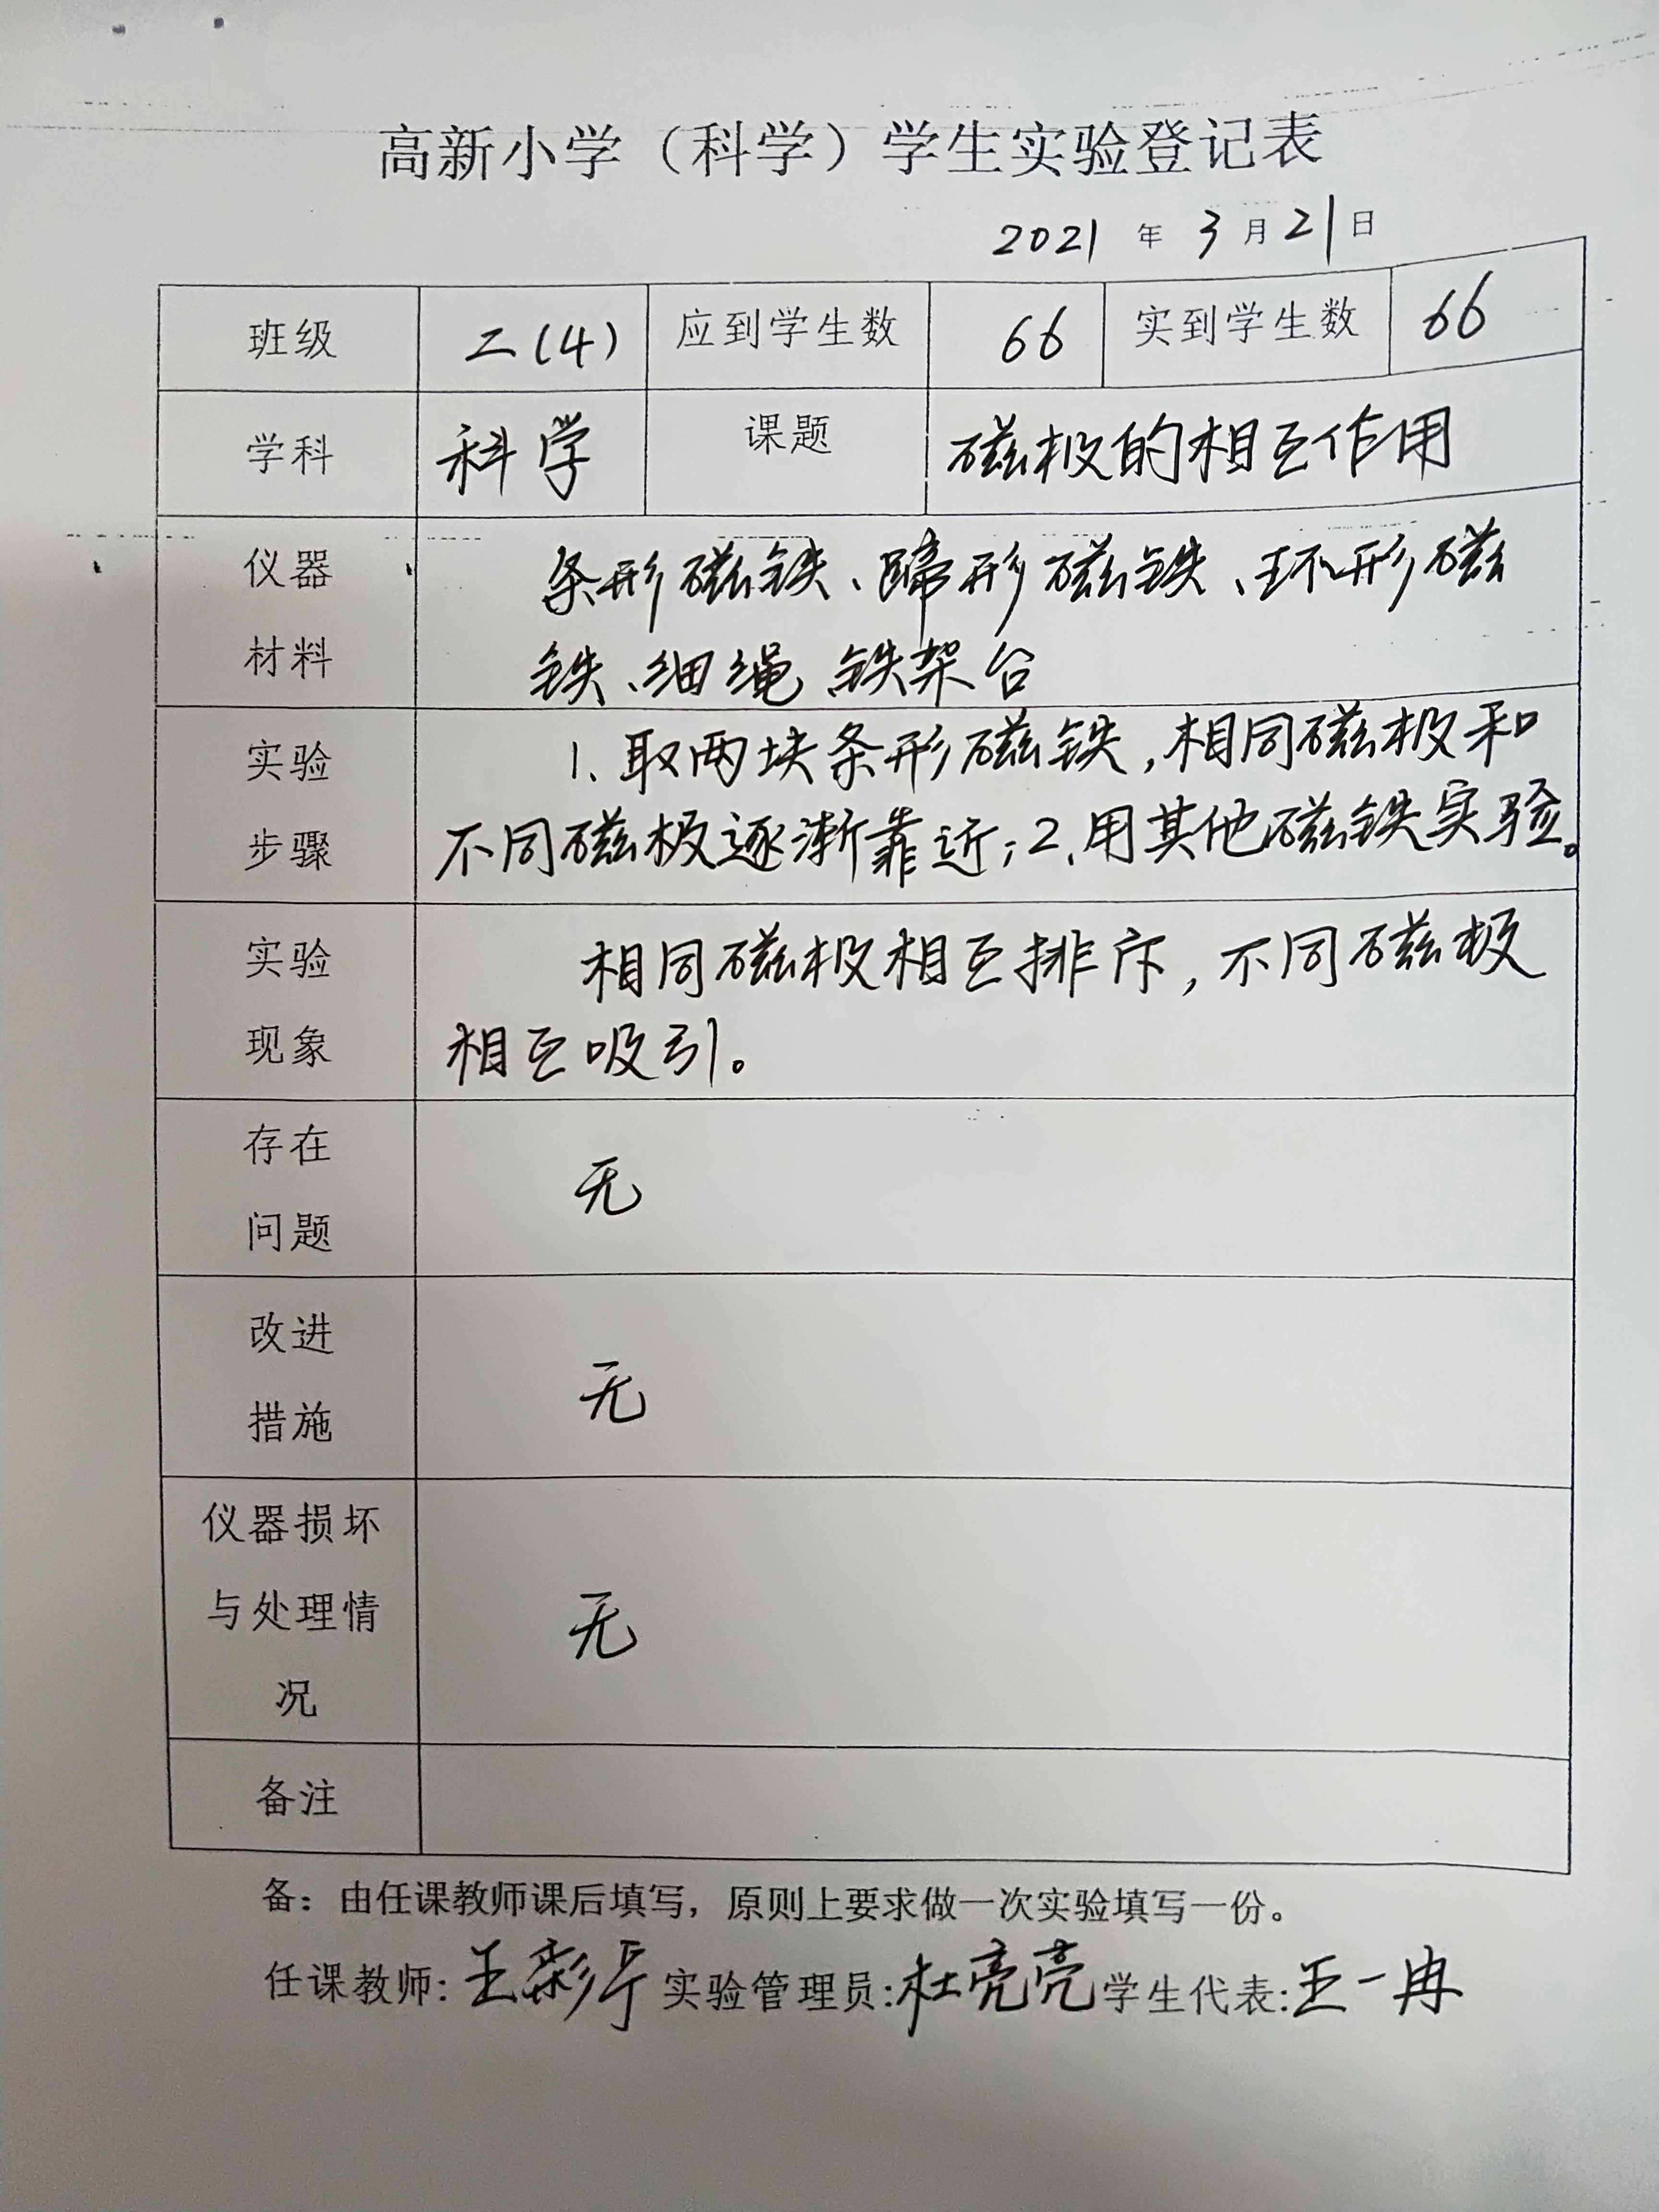 高新小学（科学）学生实验登记表
2021 年 3 月 21 日
班级 二(4) 应到学生数 66 实到学生数 66
学科 科学 课题 磁极的相互作用
仪器 条形磁铁、蹄形磁铁、环形磁
材料 铁、细绳、铁架台
实验 1、取两块条形磁铁,相同磁极和
步骤 不同磁极逐渐靠近;2、用其他磁铁实验。
实验 相同磁极相互排斥,不同磁极
现象 相互吸引。
存在
问题 无
改进
措施 无
仪器损坏
与处理情 无
况
备注
备：由任课教师课后填写，原则上要求做一次实验填写一份。
任课教师: 王彩 实验管理员:杜亮亮 学生代表:王一冉